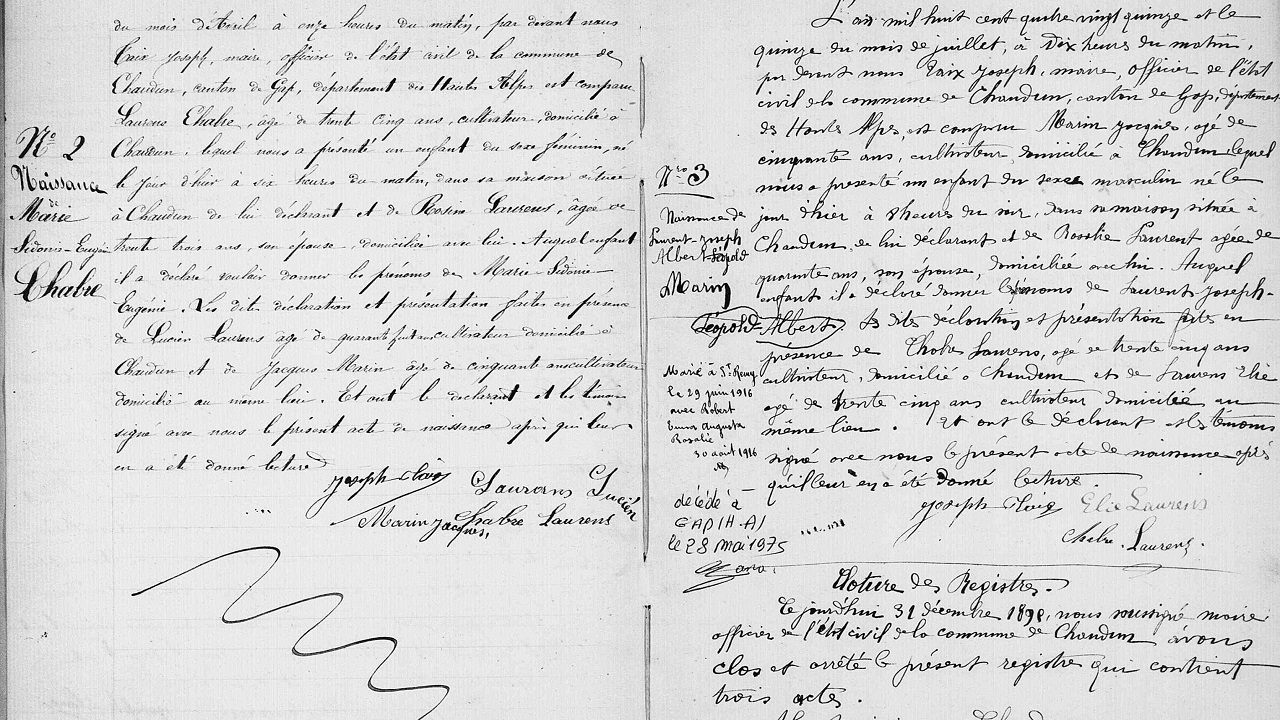 du mois d'Avril à onze heures du matin, par devant nous
Taix Joseph, maire, officier de l'état civil de la commune de
Chaudun, canton de Gap, département des Hautes Alpes est comparu
Laurens Chabre, âgé de trente cinq ans, cultivateur, domicilié à
Chaudun, lequel nous a presenté un enfant du sexe féminin, né
le jour d'hier à six heures du matin, dans sa maison située
à Chaudun de lui déclarant et de Rosine Laurens, âgée de
trente trois ans, son épouse, domiciliée avec lui. Auquel enfant
il a déclaré vouloir donner les prénoms de Marie Sidonie
Eugénie. Les dites déclaration et présentation faites en présence
de Lucien Laurens âgé de quarante huit ans cultivateur domicilié à
Chaudun et de Jacques Marin âgé de cinquante ans cultivateur
domicilié au même lieu. Et ont le déclarant et les témoins
signé avec nous le présent acte de naissance après qui leur
en a été donné lecture
Joseph Taix Laurens Lucien
Marin Jacques, Chabre Laurens
No 2
Naissance
de
Marie
Sidonie-Eugénie
Chabre
L'an mil huit cent quatre vingt quinze et le
quinze du mois de juillet, à Dix heures du matin,
par devant nous Taix Joseph, maire, officier de l'état
civil de la commune de Chaudun, canton de Gap, département
des Hautes Alpes, est comparu Marin Jacques, agé de
cinquante ans, cultivateur, domicilié à Chaudun, lequel
nous a presenté un enfant du sexe masculin né le
jour d'hier à 8 heures du soir, dans sa maison située à
Chaudun, de lui déclarant et de Rosalie Laurent agée de
quarante ans, son épouse, domiciliée avec lui. Auquel
enfant il a déclaré donner les prénoms de Laurent-Joseph-
Léopold-Albert. Les dites déclaration et présentation faites en
présence de Chabre Laurens, agé de trente cinq ans
cultivateur, domicilié à Chaudun et de Laurens Elie
agé de trente cinq ans cultivateur domicilié au
même lieu. Et ont le déclarant et les témoins
signé avec nous le présent acte de naissance après
qu'il leur en a été donné lecture.
Joseph Taix Elie Laurens
Chabre Laurens.
Nro 3
Naissance de
Laurent-Joseph
Albert Léopold
Marin
Marié à St Remy
le 29 juin 1916
avec Robert
Emma Augusta
Rosalie
30 août 1916
décédé à
GAP (H-A)
le 28 mai 1975
Cloture des Registres.
Ce jourd'hui 31 décembre 189, nous soussigné maire
officier de l'état civil de la commune de Chaudun avons
clos et arrêté le présent registre qui contient
trois actes.